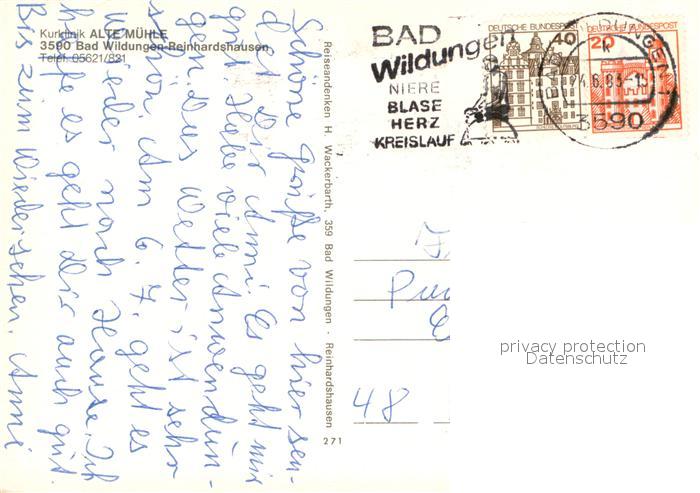 Kurklinik ALTE MÜHLE
3590 Bad Wildungen-Reinhardshausen
Telef. 05621/831
Schöne Grüße von hier sen-
det Dir Anni. Es geht mir
gut. Habe viele Anwendun-
gen. Das Wetter ist sehr
schön. Am 6. 7. geht es
wieder nach Hause. Ich
hoffe es geht Dir auch gut.
Bis zum Wiedersehen. Anni
Reiseandenken H. Wackerbarth, 359 Bad Wildungen - Reinhardshausen
271
BAD
Wildungen
NIERE
BLASE
HERZ
KREISLAUF
DEUTSCHE BUNDESPOST
40
DEUTSCHE BUNDESPOST
20
3590
48
privacy protection
Datenschutz